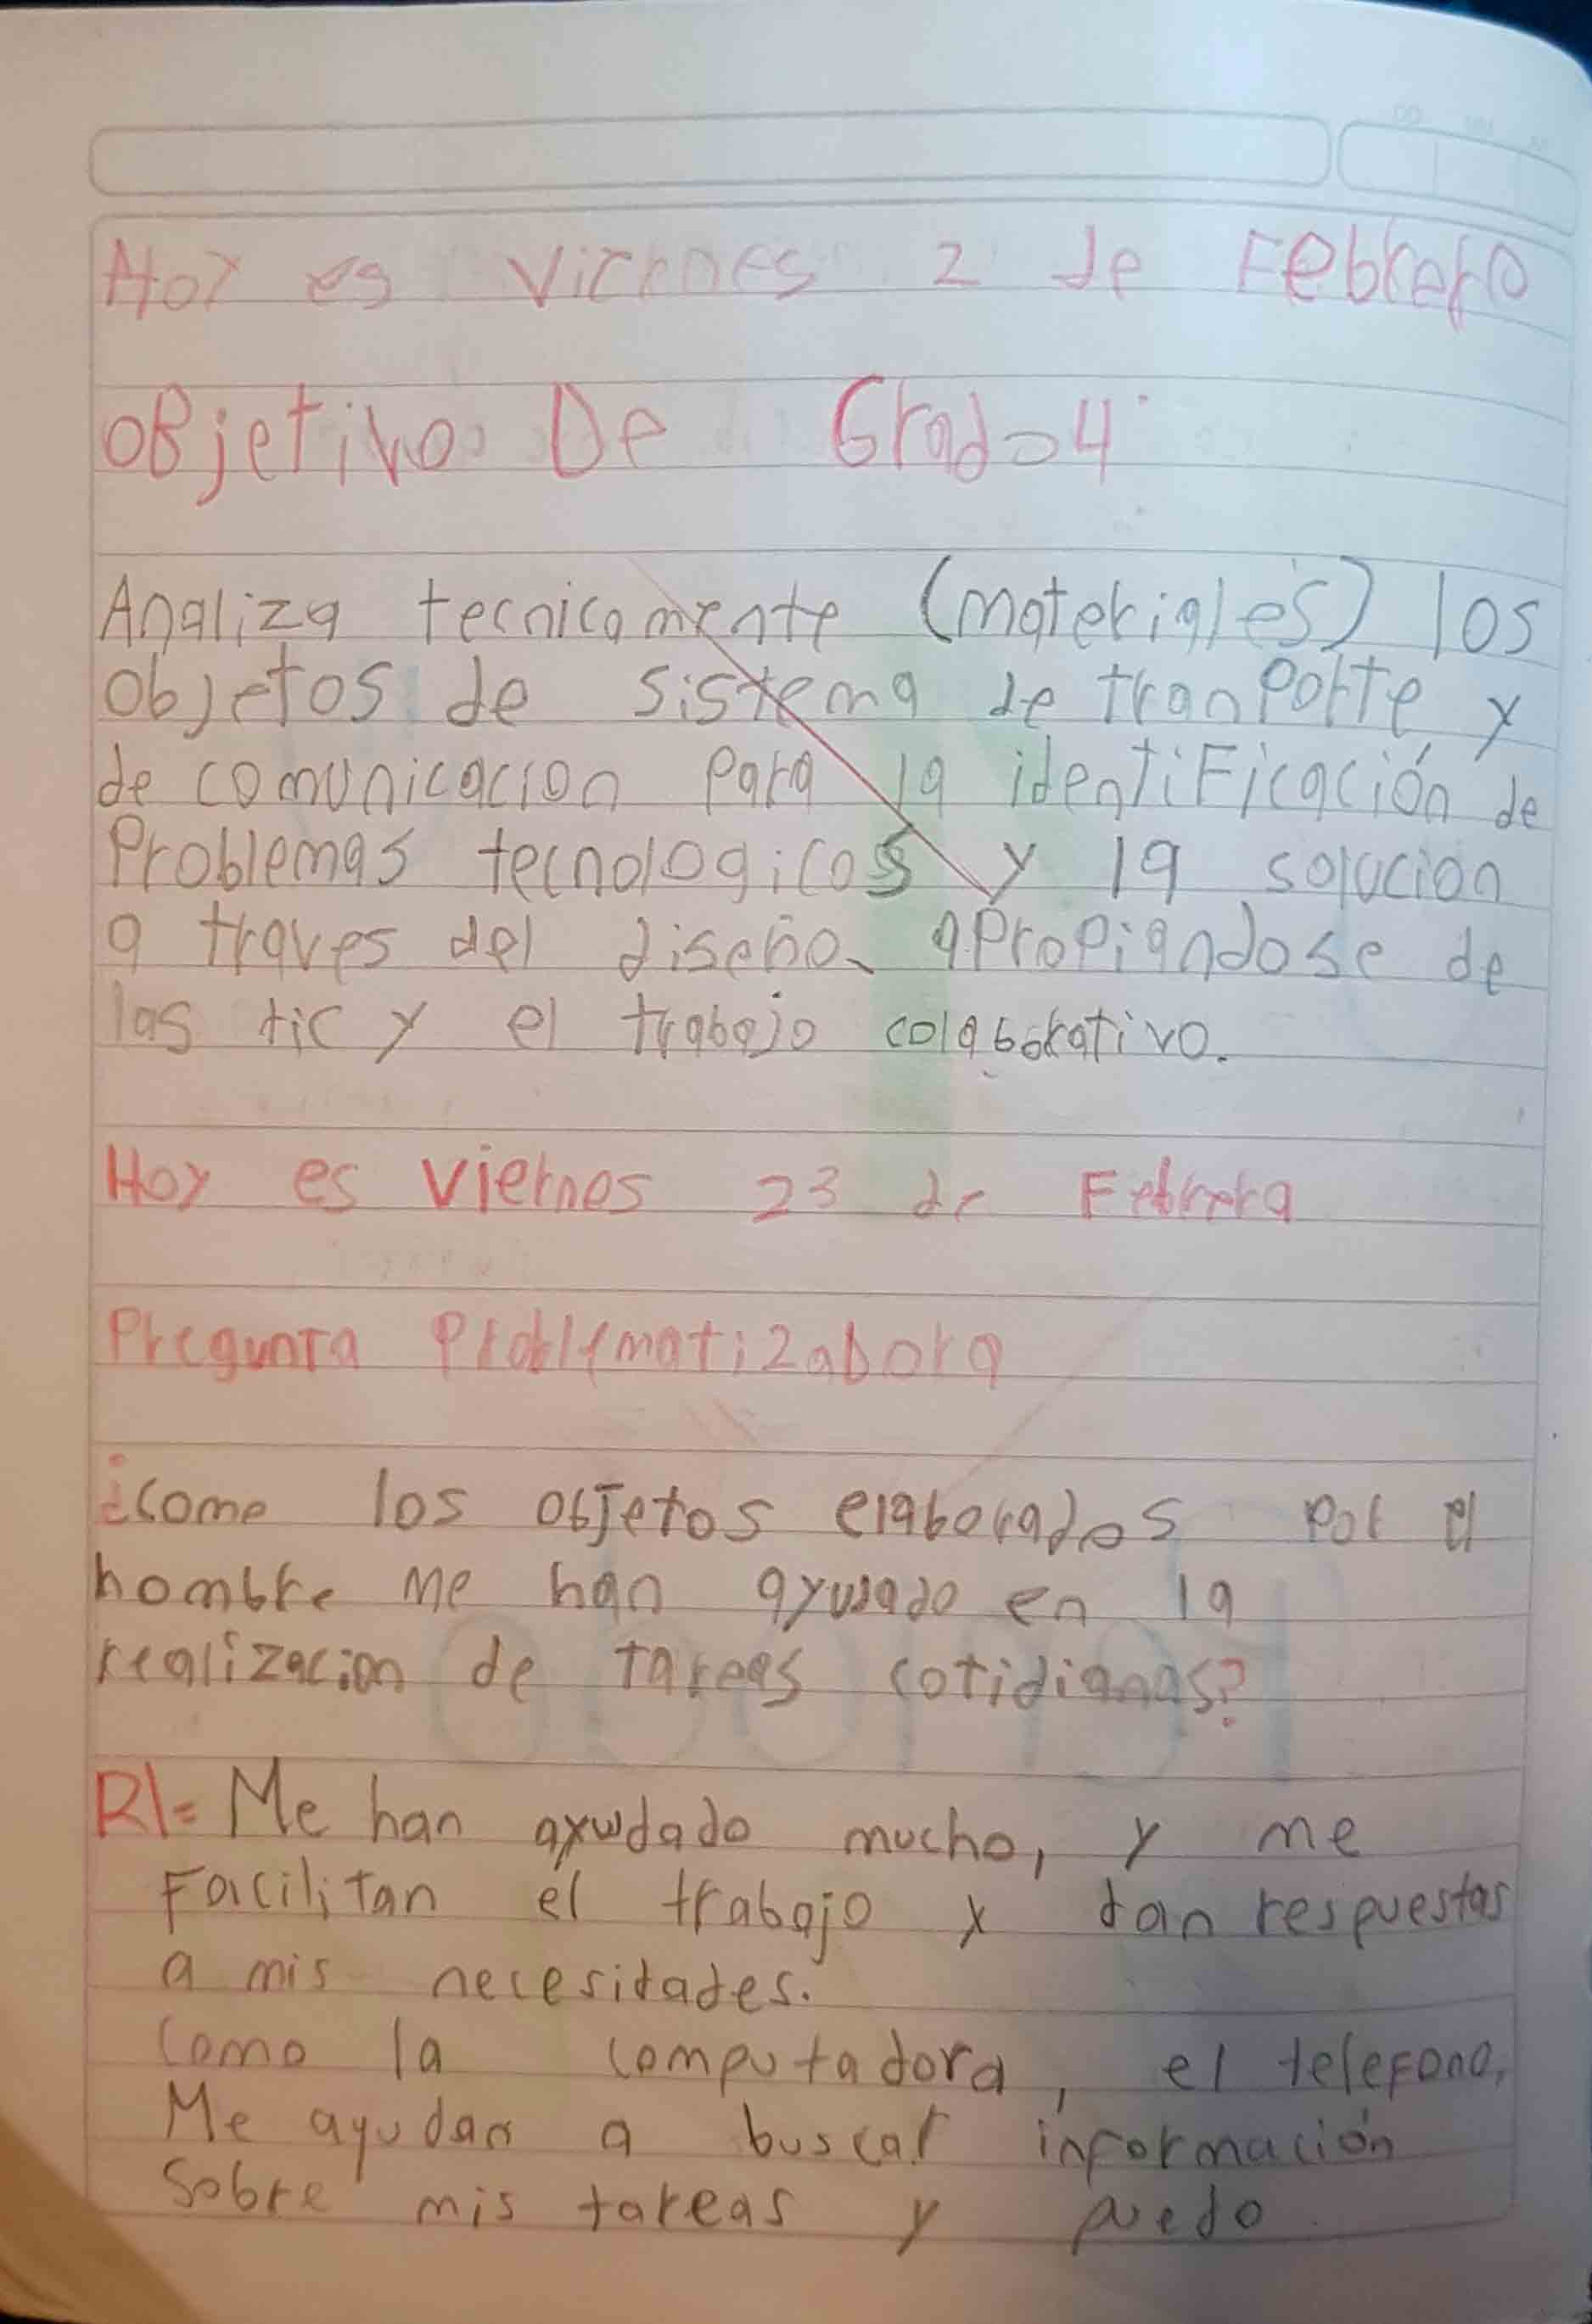 Hoy es Viernes 2 de Febrero
oBjetivo De Grado 4
Analiza tecnicamente (materiales) los
objetos de sistema de tranporte y
de comunicacion para la identiFicación de
Problemas tecnologicos y la solucion
a traves del diseño aPropiandose de
las tic y el trabajo colaborativo.
Hoy es Viernes 23 de Febrero
Pregunta Problematizadora
¿como los objetos elaborados por el
hombre me han ayudado en la
realizacion de tareas cotidianas?
R/= Me han ayudado mucho, y me
Facilitan el trabajo y dan respuestas
a mis necesidades.
como la computadora, el teleFono,
Me ayudan a buscar información
Sobre mis tareas y puedo